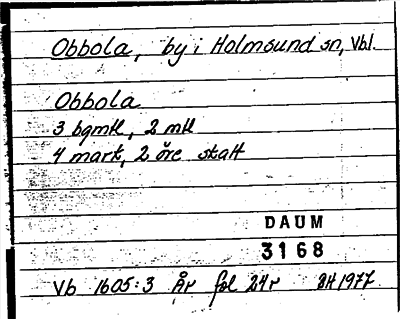 Obbola, by i Holmsund sn, Vbl.
Obbola
3 bgmtl, 2 mtl
4 mark, 2 öre skatt
DAUM
3168
Vb 1605:3 År fol 24r SH 1977